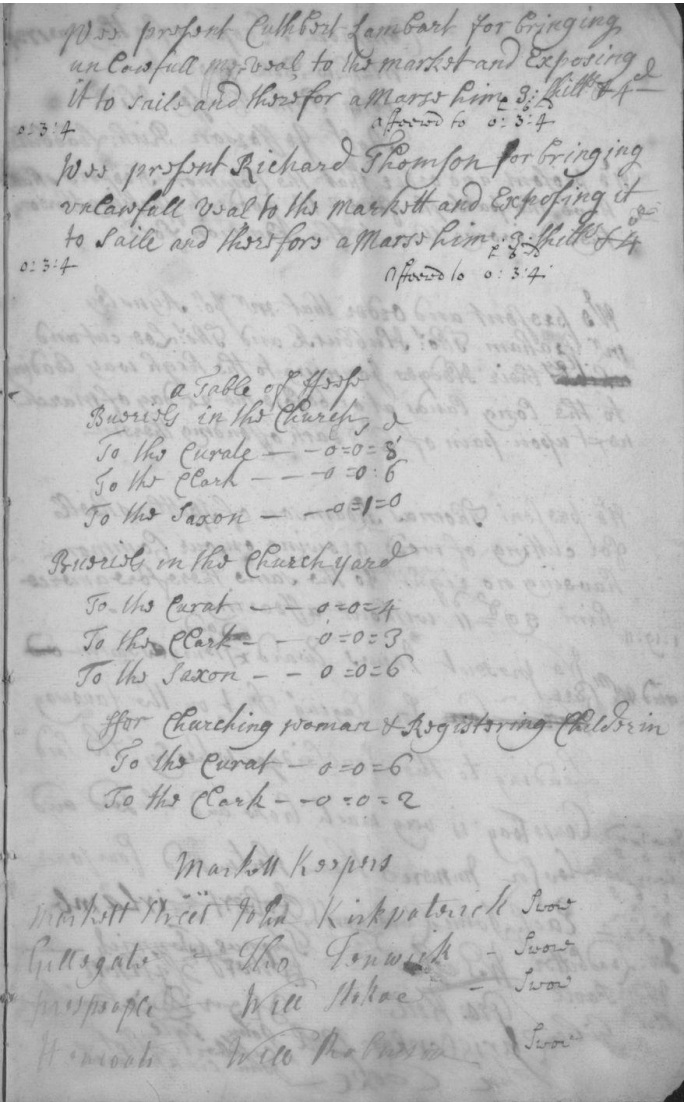 Wee present Cuthbert Lambart for bringing
unlawfull veal to the market and Exposing
it to saile and therefor amarse him 3: shills & 4d
0:3:4 affeered to 0:3:4
Wee present Richard Thomson for bringing
vnlawfull veal to the markett and Exposing it
to Saile and therefore amarse him 3: shills & 4d
0:3:4 affeered to 0:3:4
a Table of ffese
Bueriels in the Church
To the Curate - - 0=0=8d
To the Clark - - - 0=0:6
To the Saxon - - 0=1=0
Bueriels in the Church yard
To the Curat - - 0=0=4
To the Clark - - 0=0=3
To the Saxon - - 0=0=6
ffor Churching woman & Registering Childerin
To the Curat - 0=0=6
To the Clark - - 0=0=2
Markett Keepers
Markett Street John Kirkpaterick Swor
Gillegate - Tho Fenwick - Swor
Will - Swor
Will Swor